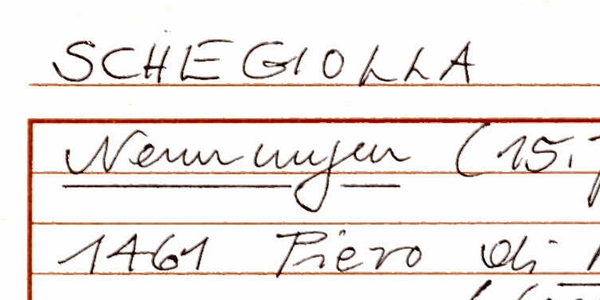 SCHEGIOLLA
Nennungen (15.
1461 Piero di